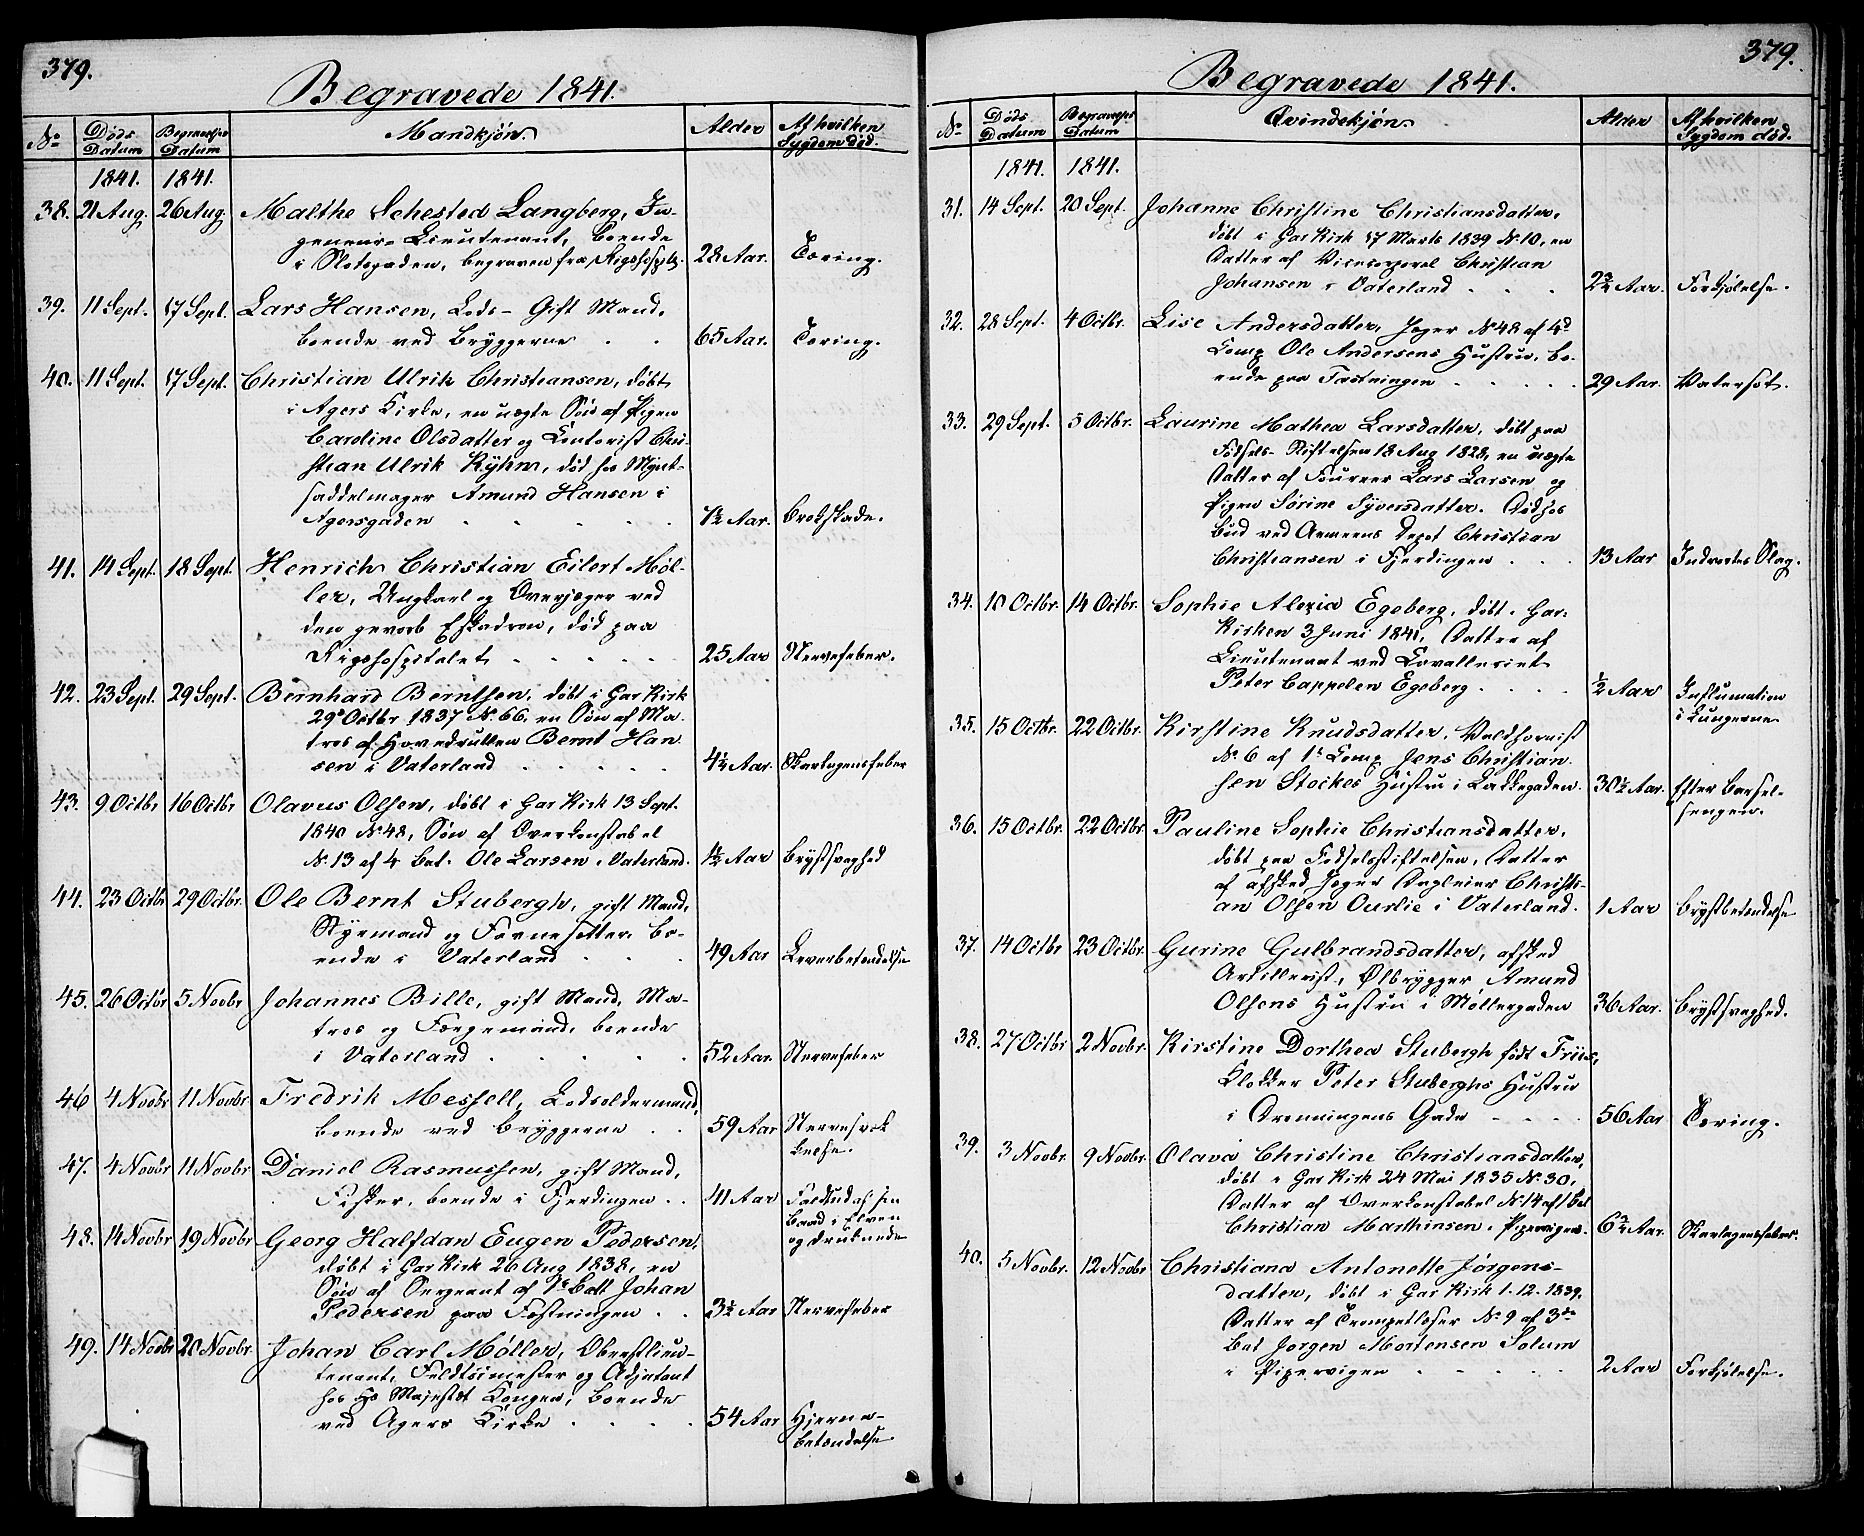 379.
Begravede 1841.
No
Døds Datum
Begravelses Datum
Mandkjøn.
Alder
Af hvilken Sygdom død.
1841. 1841.
38. 21 Aug. 26 Aug. Malthe Sehested Langberg, In-
geneur-Lieutenant, boende
i Slotsgaden, begraven fra Rigshospit. 28 Aar. Tæring.
39. 11 Sept. 17 Sept. Lars Hansen, Lods- Gift Mand,
boende ved Bryggerne 65 Aar. Tæring.
40. 11 Sept. 17 Sept. Christian Ulrik Christiansen, døbt
i Agers Kirke, en uægte Søn af Pigen
Caroline Olsdatter og Contorist Chri-
stian Ulrik Kyhn, død hos Mynt-
saddelmager Amund Hansen i
Agersgaden 1½ Aar. Brokskade.
41. 14 Sept. 18 Sept. Henrich Christian Eilert Møl-
ler, Ungkarl og Overjæger ved
den gevorb. Eskadron, død paa
Rigshospitalet 25 Aar Nervefeber.
42. 23 Sept. 29 Sept. Bernhard Berntsen, døbt i Gar Kirk
29 Octbr 1837 No 66, en Søn af Ma-
tros af Hovedrullen Bernt Han
sen i Vaterland 4½ Aar. Skarlagensfeber
43. 9 Octbr 16 Octbr Olavus Olsen, døbt i Gar Kirk 13 Sept.
1840 No 48, Søn af Overkonstabel
No 13 af 4 Bat. Ole Larsen i Vaterland. 1½ Aar Brystsvaghed
44. 23 Octbr 29 Octbr. Ole Bernt Stubergh, gift Mand,
Styrmand og Favnesetter bo-
ende i Vaterland 49 Aar Leverbetendelse
45. 26 Octbr 5 Novbr Johannes Bille, gift Mand, Ma-
tros og Færgemand, boende
i Vaterland 52 Aar. Nervefeber
46 4 Novbr 11 Novbr. Fredrik Messell, Lodsoldermand,
boende ved Bryggerne 59 Aar Nervesvæk
kelse.
47. 4 Novbr 11 Novbr Daniel Rasmussen, gift Mand,
Fisker, boende i Fjerdingen 41 Aar Faldt ud af sin
Baad i Elven
og druknede
48. 14 Novbr 19 Novbr Georg Halfdan Eugen Pedersen,
døbt i Gar Kirk 26 Aug 1838, en
Søn af Sergeant af 1e Batt Johan
Pedersen paa Fæstningen 3½ Aar Nervefeber
49. 14 Novbr 20 Novbr. Johan Carl Møller, Oberstlieu-
tenant, Feldtøimester og Adjutant
hos Hs Majestæt Kongen, boende
ved Agers Kirke 54 Aar Hjerne-
betændelse.
379.
Begravede 1841.
No
Døds Datum
Begravelses Datum
Qvindekjøn.
Alder
Af hvilken Sygdom død.
1841. 1841.
31. 14 Sept. 20 Sept. Johanne Christine Christiansdatter,
døbt i Gar Kirk 17 Marts 1839 No 10, en
Datter af Vicecorporal Christian
Johansen i Vaterland 2¾ Aar. Forkjølelse.
32. 28 Sept. 4 Octbr. Lise Andersdatter, Jæger No 48 af 4d
Comp Ole Andersens Hustru, bo-
ende paa Fæstningen 29 Aar. Vatersot.
33. 29 Sept. 5 Octbr. Laurine Mathea Larsdatter, døbt paa
Fødsels-Stiftelsen 18 Aug 1828, en uægte
Datter af Fourer Lars Larsen og
Pigen Sørine Syversdatter. Død hos
Bud ved Armeens Depot Christian
Christiansen i Fjerdingen 13 Aar Indvortes Slag.
34. 10 Octbr. 14 Octbr. Sophie Alexia Egeberg, døbt i Gar.
Kirken 3 Juni 1841, Datter af
Lieutenant ved Cavalleriet
Peter Cappelen Egeberg ½ Aar Inflamation
i Lungerne
35. 15 Octbr. 22 Octbr. Kirstine Knudsdatter, Valdhornist
No 6 af 1e Comp Jens Christian
sen Stockes Hustru i Lakkegaden. 30½ Aar. Efter Barsel-
sengen.
36. 15 Octbr. 22 Octbr Pauline Sophie Christiansdatter,
døbt paa Fødselsstiftelsen, Datter
af afsked Jæger Dagleier Christi-
an Olsen Ourlie i Vaterland. 1 Aar Brystbetendelse
37. 14 Octbr 23 Octbr. Gurine Gulbrandsdatter, afsked
Artillerist, Ølbrygger Amund
Olsens Hustru i Møllergaden 36 Aar. Brystsvaghed.
38. 27 Octbr 2 Novbr. Kirstine Dorthea Stubergh født Friis,
Klokker Peter Stuberghs Hustru
i Dronningens Gade 56 Aar Tæring.
39. 3 Novbr. 9 Novbr. Olava Christine Christiansdatter,
døbt i Gar Kirk 24 Mai 1835 No 30,
Datter af Overkonstabel No 14 af 1 Bat
Christian Marthinsen i Pipervigen. 6¾ Aar. Skarlagensfeber.
40. 5 Novbr. 12 Novbr Christiana Antonette Jørgens-
datter, døbt i Gar Kirk 1-12-1839.
Datter af Trompetblæser No 9 af 3die
Bat Jørgen Mortensen Solum
i Pipervigen 2 Aar Forkjølelse.